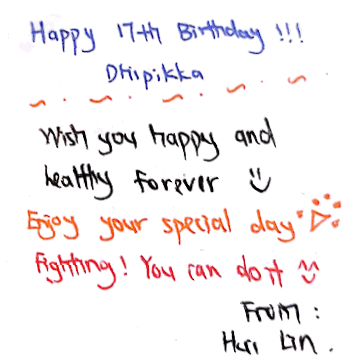 Happy 17th Birthday !!!
Dhipikka
Wish you happy and
healthy forever
Enjoy your special day
Fighting! You can do it
From :
Hui Lin.